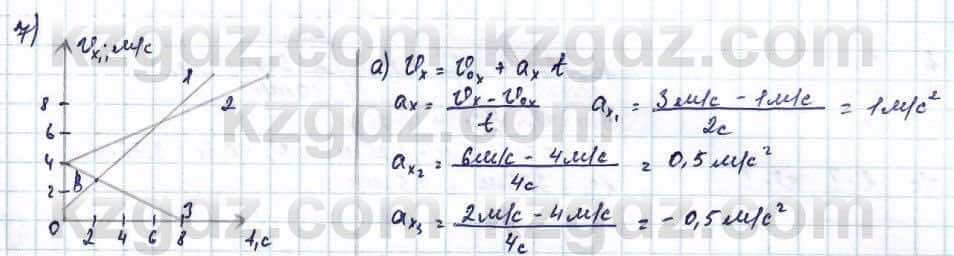 7)
𝑣x, м/с
1
2
8
6
4
2
B
3
0 2 4 6 8 t, с
а) 𝑣x = 𝑣0x + ax t
ax = (𝑣x - 𝑣0x)/t    ax1 = (3 м/с - 1 м/с)/2с = 1 м/с²
ax2 = (6 м/с - 4 м/с)/4с = 0,5 м/с²
ax3 = (2 м/с - 4 м/с)/4с = - 0,5 м/с²
kzgdz.com kzgdz.com
kzgdz.com kzgdz.com
kzgdz.com kzgdz.com